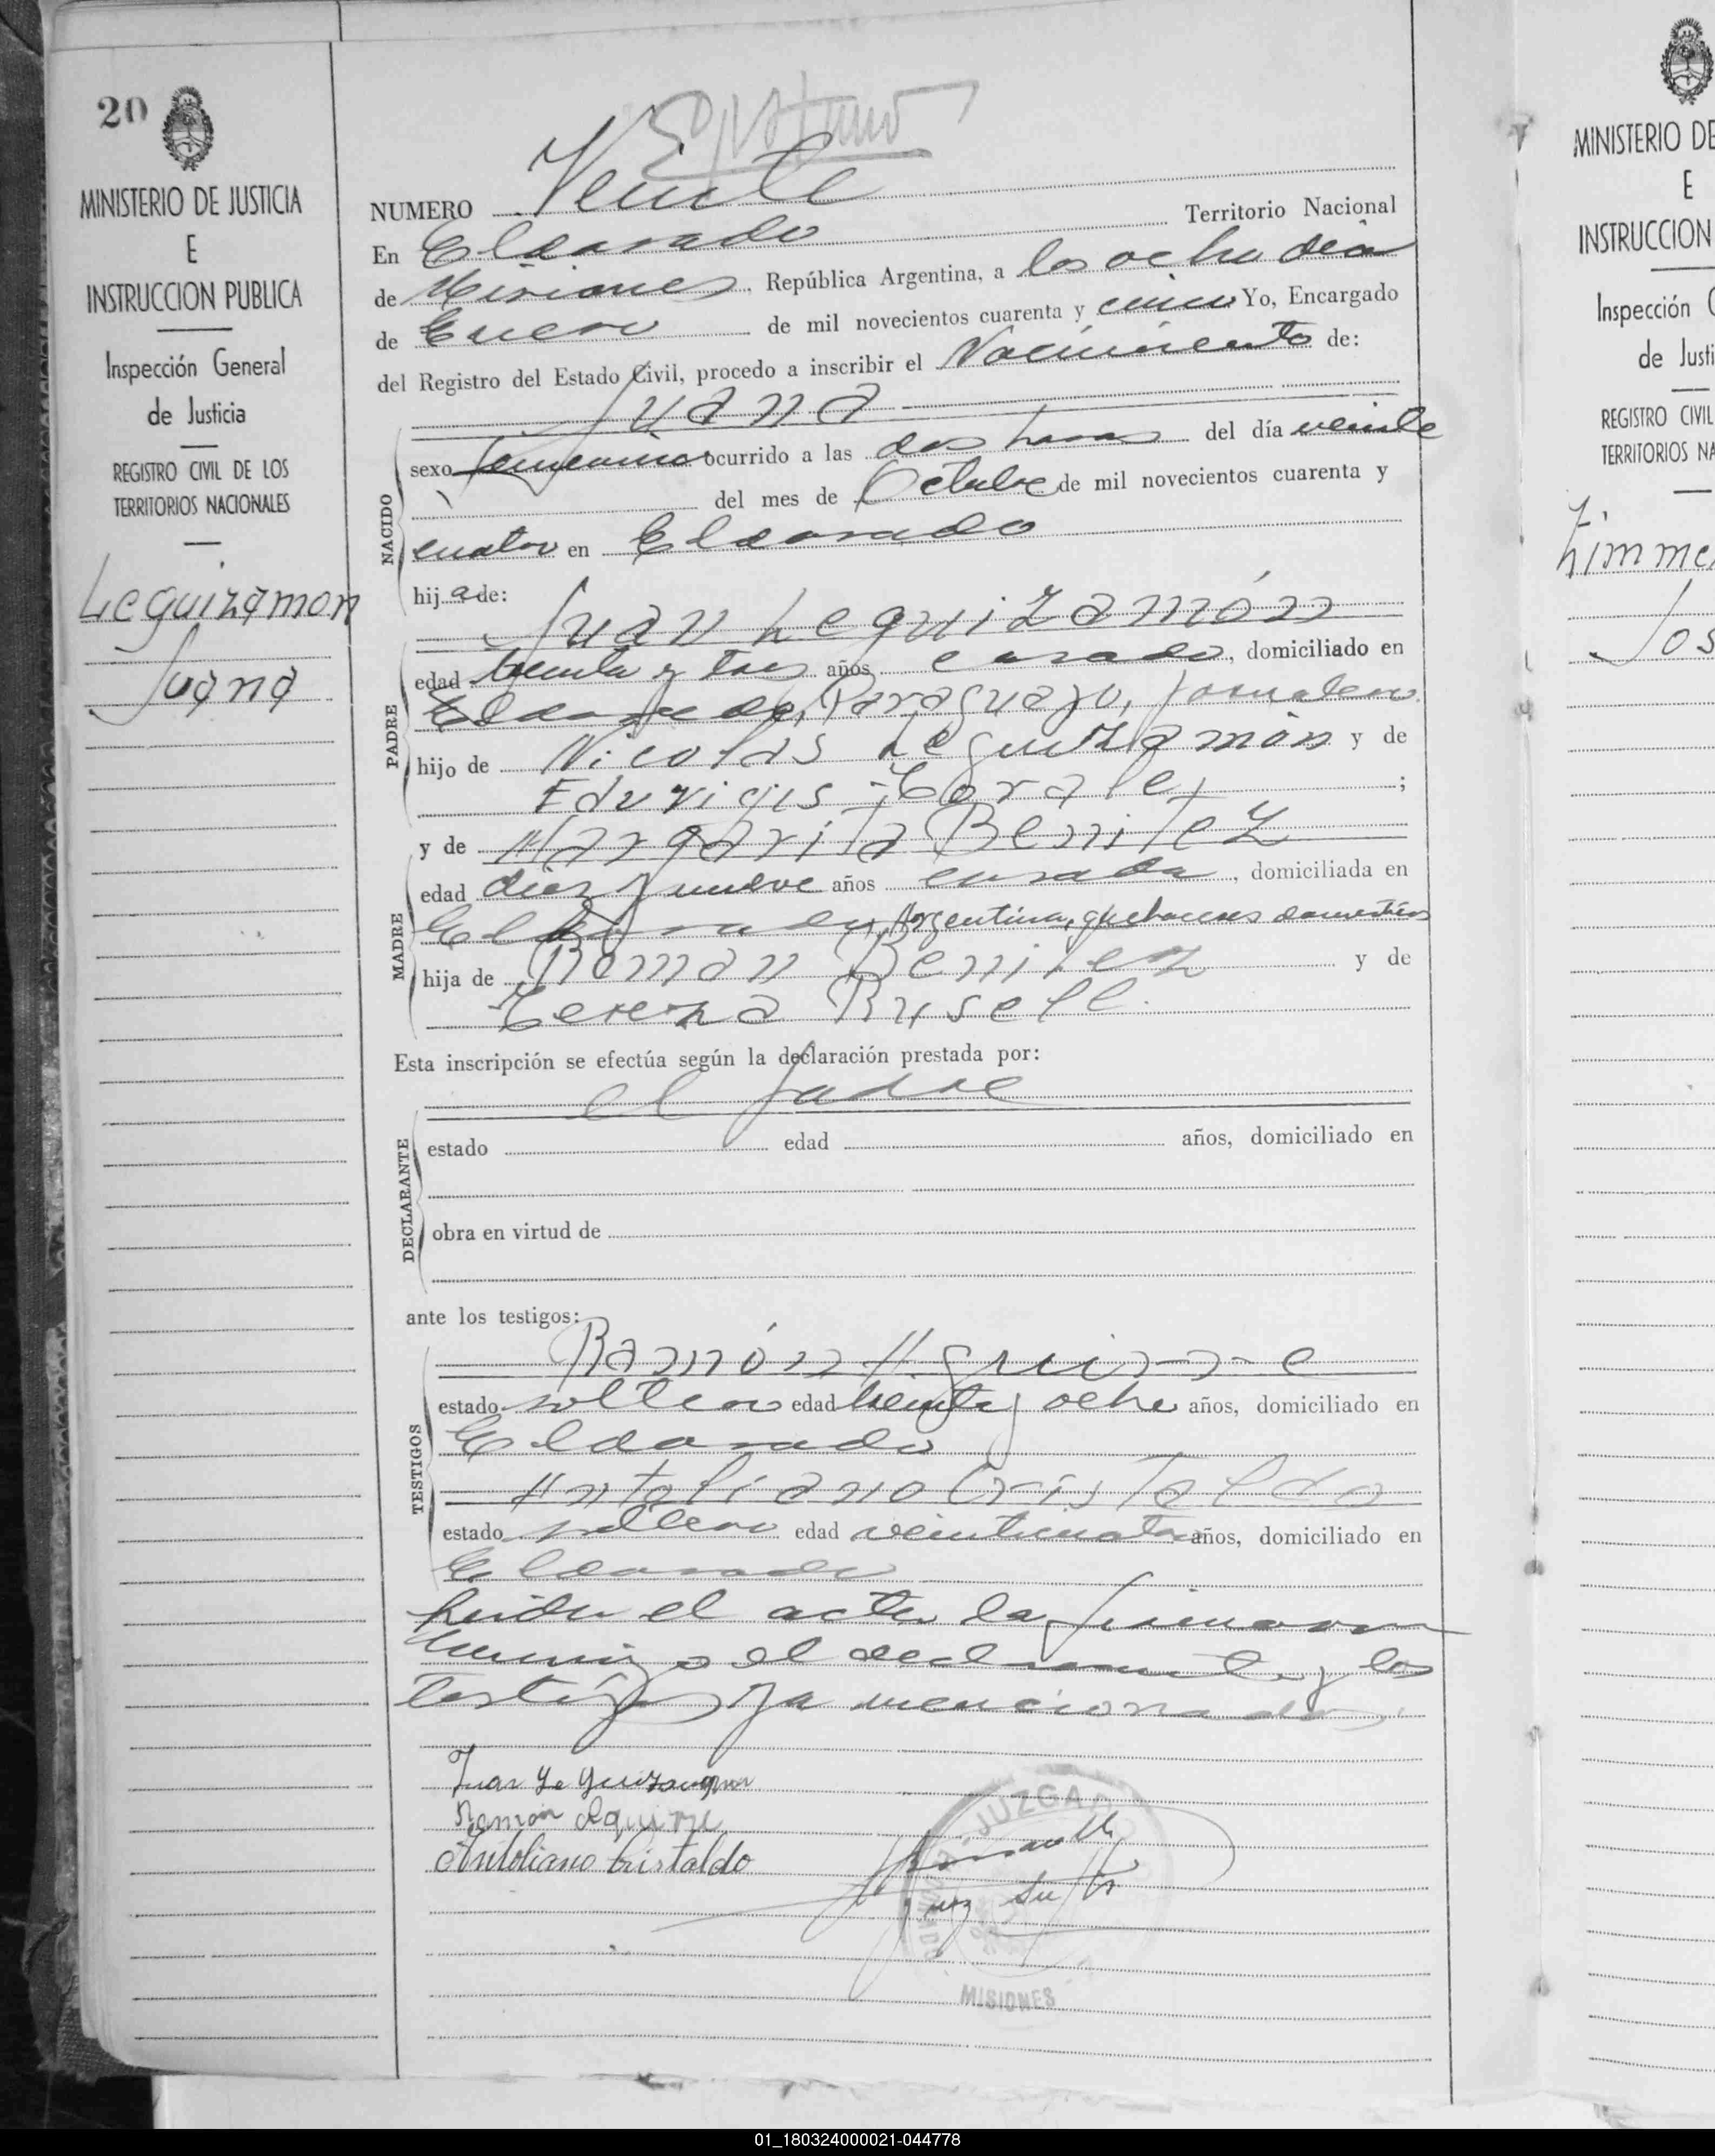 20
MINISTERIO DE JUSTICIA
E
INSTRUCCION PUBLICA
Inspección General
de Justicia
REGISTRO CIVIL DE LOS
TERRITORIOS NACIONALES
Leguizamon
Juana
NUMERO Veinte
En Eldorado Territorio Nacional
de Misiones, República Argentina, a los ocho dia
de Enero de mil novecientos cuarenta y cinco Yo, Encargado
del Registro del Estado Civil, procedo a inscribir el Nacimiento de:
Juana
NACIDO
sexo femenino ocurrido a las dos horas del día veinte
del mes de Octubre de mil novecientos cuarenta y
cuatro en Eldorado
hija de:
Juan Leguizamón
PADRE
edad treinta y tres años casado, domiciliado en
Eldorado, Paraguayo, jornalero
hijo de Nicolas Leguizamón y de
Eduvigis ;
y de Margarita Benitez
MADRE
edad diez y nueve años casada, domiciliada en
Eldorado, Argentina, quehaceres domesticos
hija de Roman Benitez y de
Tereza Rusell.
Esta inscripción se efectúa según la declaración prestada por:
el padre
DECLARANTE
estado edad años, domiciliado en
obra en virtud de
ante los testigos:
Ramón Aguirre
TESTIGOS
estado soltero edad treinta y ocho años, domiciliado en
Eldorado
Antoliano Cristaldo
estado soltero edad veinticuatro años, domiciliado en
Eldorado
Leida el acta la firmaron
conmigo el declarante y los
testigos ya mencionados.
Juan Leguizamon
Ramón Aguirre
Antoliano Cristaldo
Juez Supte
JUZGADO
MISIONES
MINISTERIO DE
E
INSTRUCCION
Inspección G
de Justi
REGISTRO CIVIL
TERRITORIOS NA
Zimmer
Jos
01_180324000021-044778